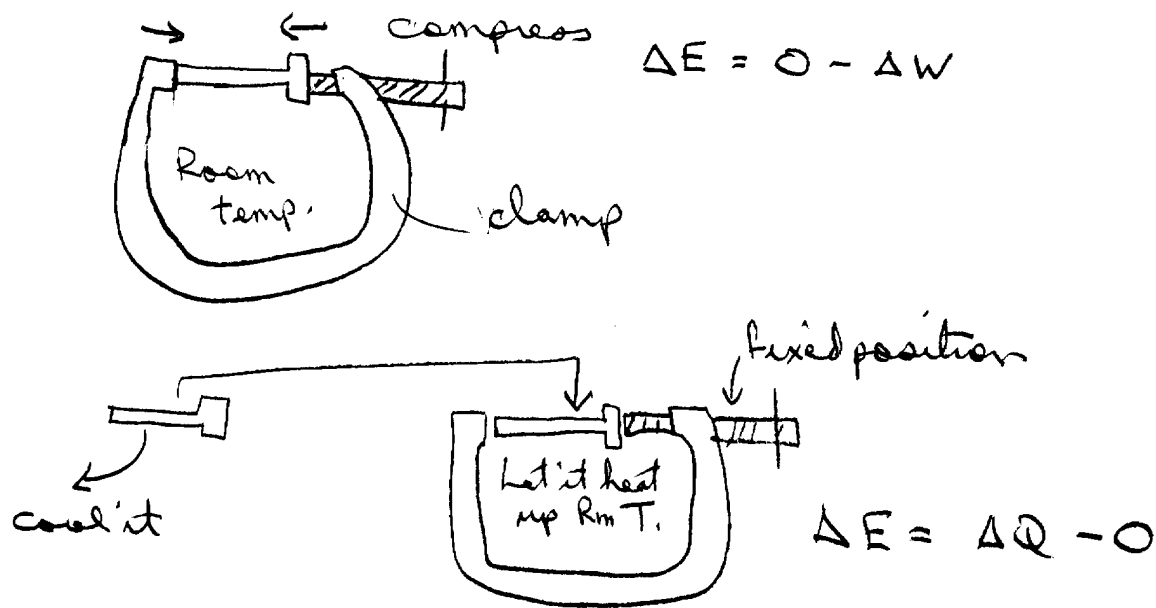 compress
ΔE = O - ΔW
Room
temp.
clamp
fixed position
cool it
Let it heat
up Rm T.
ΔE = ΔQ - O